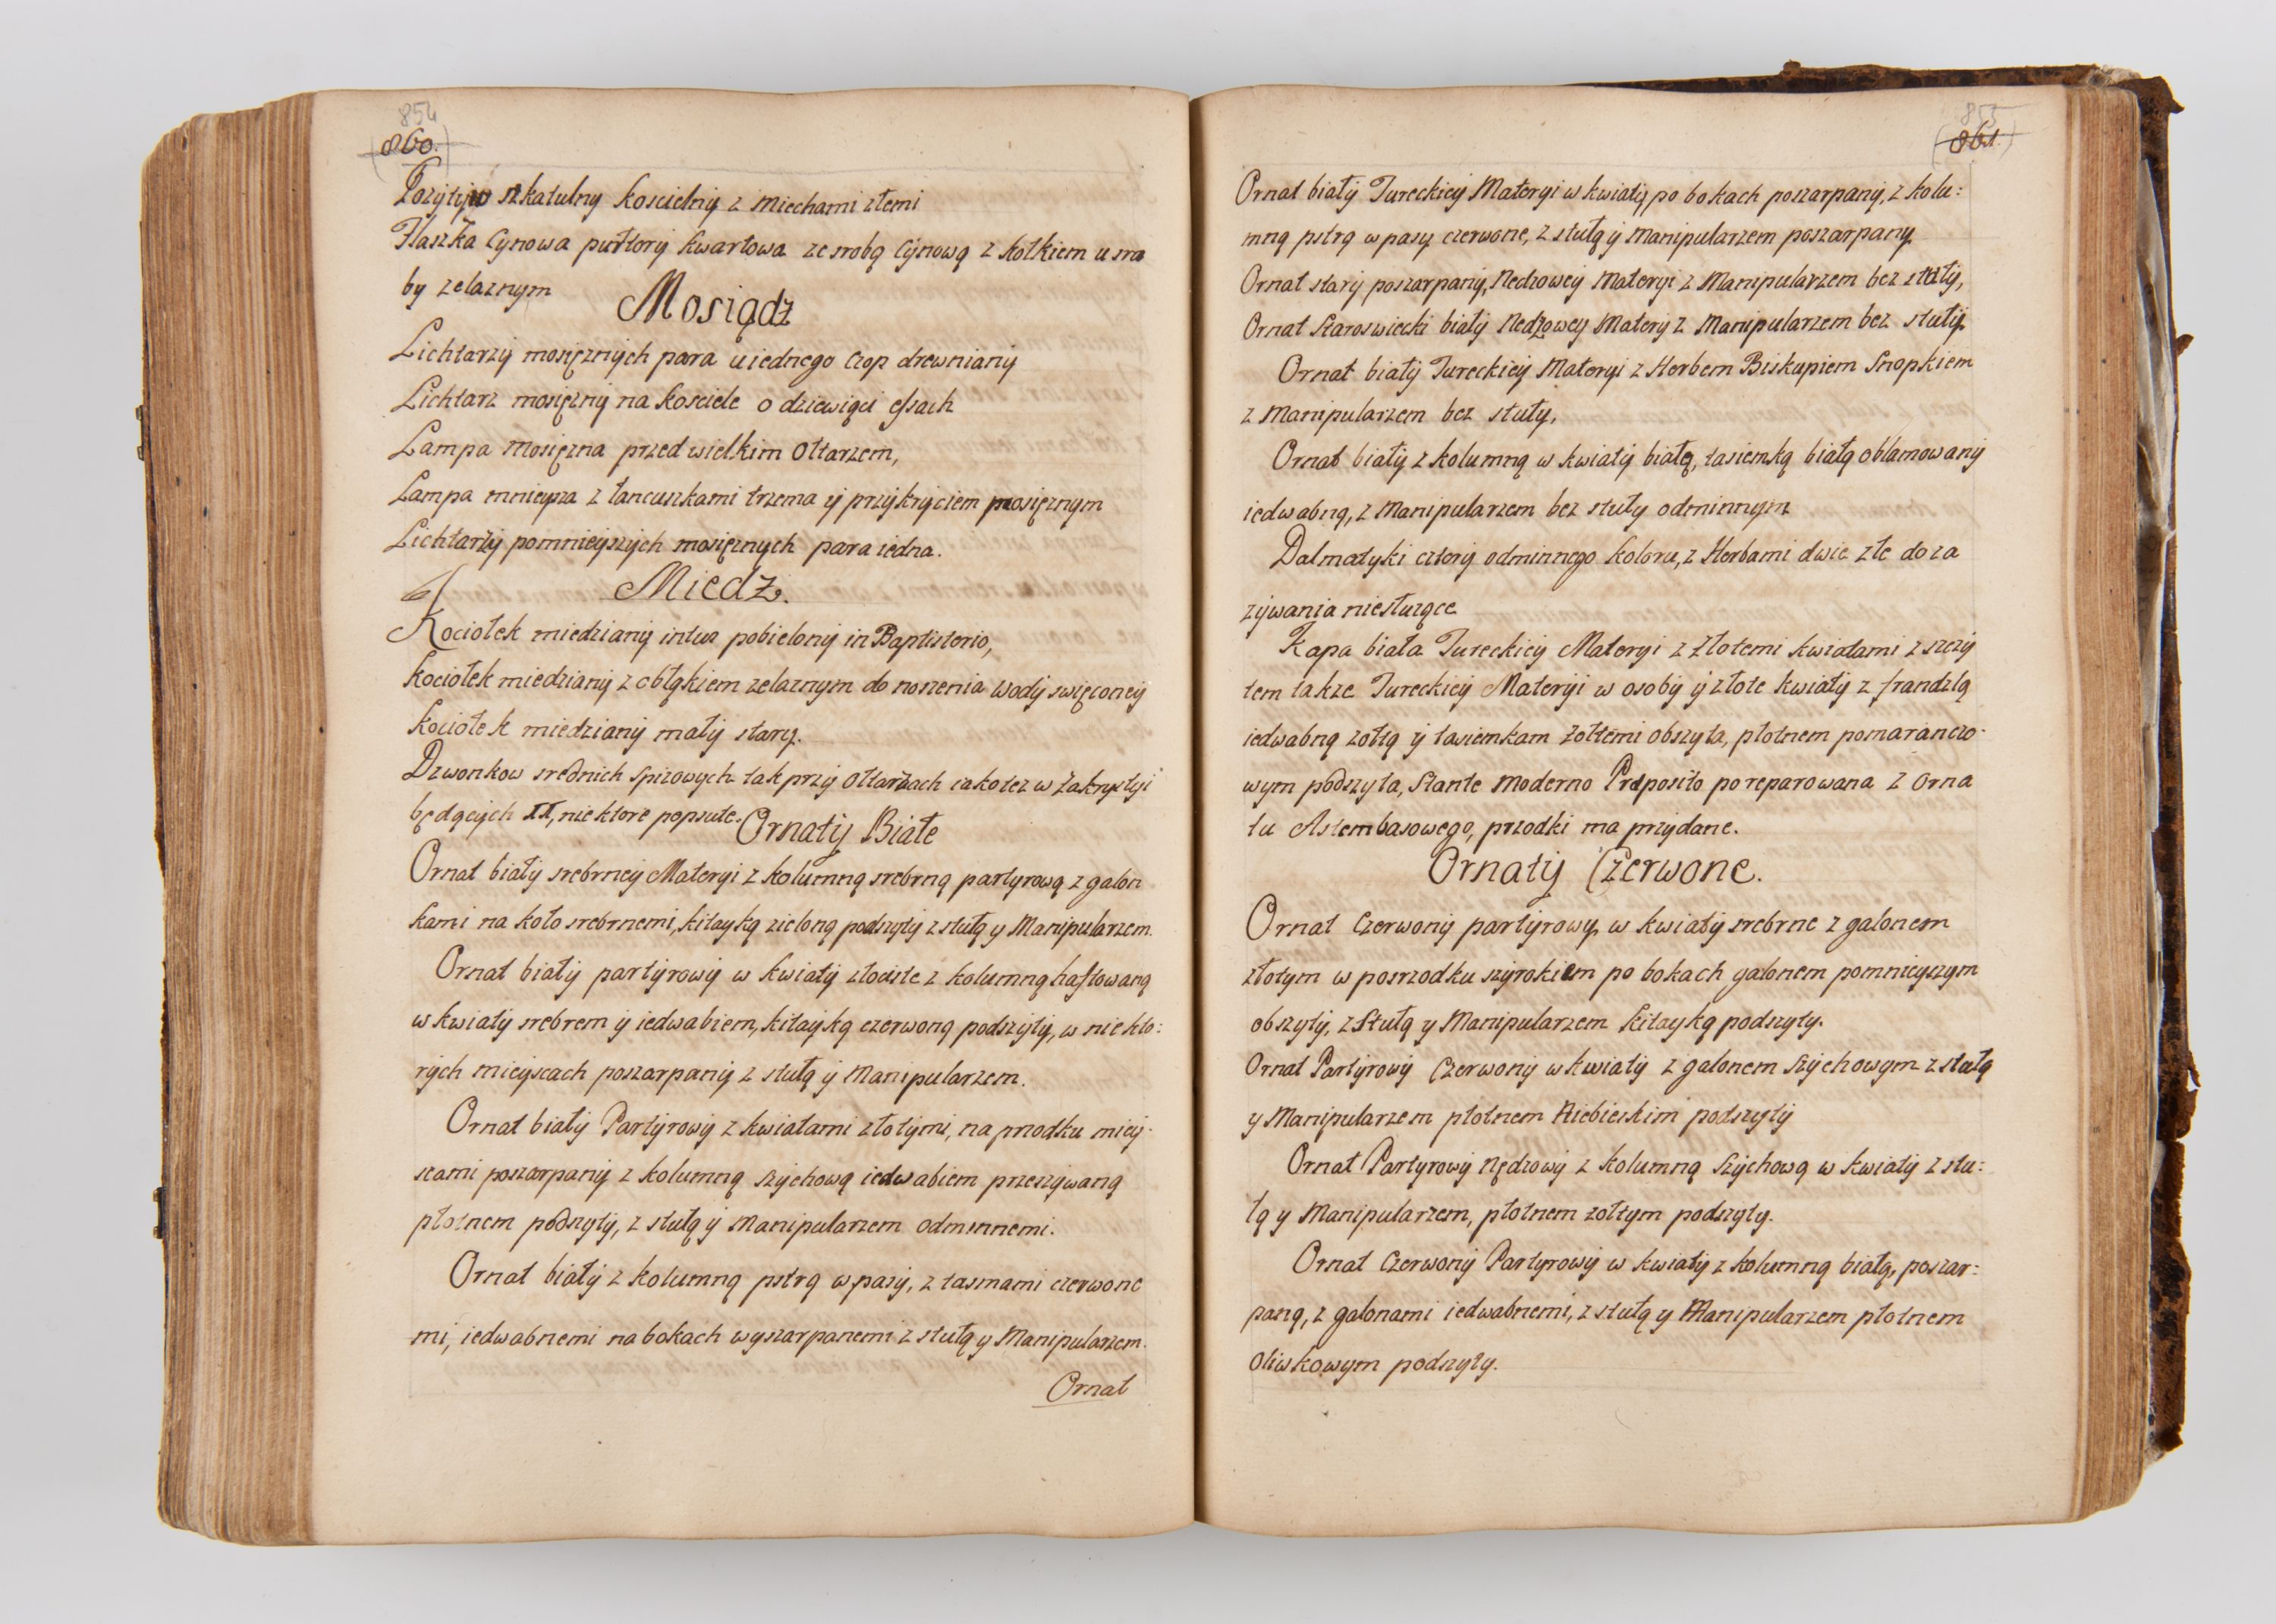 854
860.
Pozytyw szkatulny koscielny z miechami złemi
Flaszka Cynowa pułtory kwartowa ze srobą Cynową z kołkiem u sro
by zelaznym
Mosiądz
Lichtarzÿ mosięznÿch para u iednego czop drewnianÿ
Lichtarz mosięznÿ na kosciele o dziewiąci essach
Lampa Mosięzna przed wielkim Ołtarzem,
Lampa mnieysza z łancuszkami trzema ÿ przÿkrÿciem mosięznym
Lichtarzÿ pomnieÿszÿch mosięznych para iedna.
Miedz.
Kociołek miedzianÿ intus pobielonÿ in Baptisterio,
kociołek miedzianÿ z obłąkiem zelaznym do noszenia Wodÿ swięconeÿ
kociołek miedzianÿ małÿ starÿ.
Dzwonkow srednich spizowych tak przÿ Ołtarzach iako tez w Zakrystÿi
będącÿch II, nie ktore popsute.
Ornatÿ Białe
Ornat białÿ srebrneÿ Materyi z kolumną srebrną partyrową z galon
kami na koło srebrnemi, kitayką zieloną podszytÿ z stułą y Manipularzem.
Ornat białÿ partÿrowÿ w kwiatÿ złociste z kolumną haftowaną
w kwiatÿ srebrem ÿ iedwabiem, kitayką czerwoną podszÿtÿ, w nie kto:
rÿch mieyscach poszarpanÿ z stułą ÿ Manipularzem.
Ornat białÿ Partÿrowÿ z kwiatami złotÿmi, na przodku mieÿ-
scami poszarpanÿ z kolumną szÿchową iedwabiem przeszÿwaną
płotnem podszytÿ, z stułą ÿ Manipularzem odminnemi.
Ornat białÿ z kolumną pstrą w pasÿ, z tasmami czerwone
mi, iedwabnemi na bokach wyszarpanemi z stułą y Manipularzem.
Ornat
855
861.
Ornat białÿ Tureckieÿ Materyi w kwiatÿ, po bokach poszarpanÿ, z kolu:
mną pstrą w pasy czerwone, z stułą ÿ Manipularzem poszarpany.
Ornat starÿ poszarpanÿ, Nedzoweÿ Materyi z Manipularzem bez stułÿ,
Ornat Staroswiecki białÿ Nedzowey Materÿ z Manipularzem bez stułÿ.
Ornat białÿ Tureckieÿ Materyi z Herbem Biskupiem Snopkiem
z Manipularzem bez stuły,
Ornat białÿ z kolumną w kwiatÿ białą, tasiemką białą oblamowanÿ
iedwabną, z Manipularzem bez stuły odminnym
Dalmatyki czterÿ odminnego koloru, z Herbami dwie złe do za
zÿwania niesłuzące
Kapa biała Tureckieÿ Materyi z Złotemi kwiatami z szczÿ
tem także Tureckieÿ Materÿi w osobÿ ÿ złote kwiatÿ z frandzlą
iedwabną zołtą ÿ tasiemkam Zołtemi obszyta, płotnem pomaranczo-
wym podszyta, Stante Moderno Præposito po reparowana z Orna
tu Astembasowego, przodki ma przÿdane.
Ornatÿ Czerwone.
Ornat Czerwonÿ partÿrowy, w kwiatÿ srebrne z galonem
złotym w posrzodku szyrokiem po bokach galonem pomnieyszym
obszytÿ, z Stułą y Manipularzem kitayką podszyty.
Ornat Partÿrowÿ Czerwonÿ w kwiatÿ z galonem szÿchowym z stułą
y Manipularzem płotnem Niebieskim podszytÿ
Ornat Partyrowÿ Nędzowÿ z kolumną szÿchową w kwiatÿ z stu:
łą y Manipularzem, płotnem zołtym podszyty.
Ornat Czerwonÿ Partyrowÿ w kwiatÿ z kolumną białą, poszar:
paną, z galonami iedwabnemi, z stułą y Manipularzem płotnem
oliwkowym podszyty.